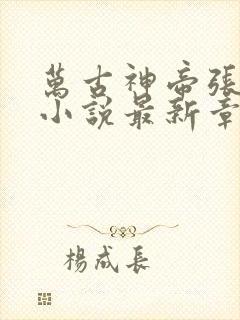 萬古神帝張
小說最新章
楊成長